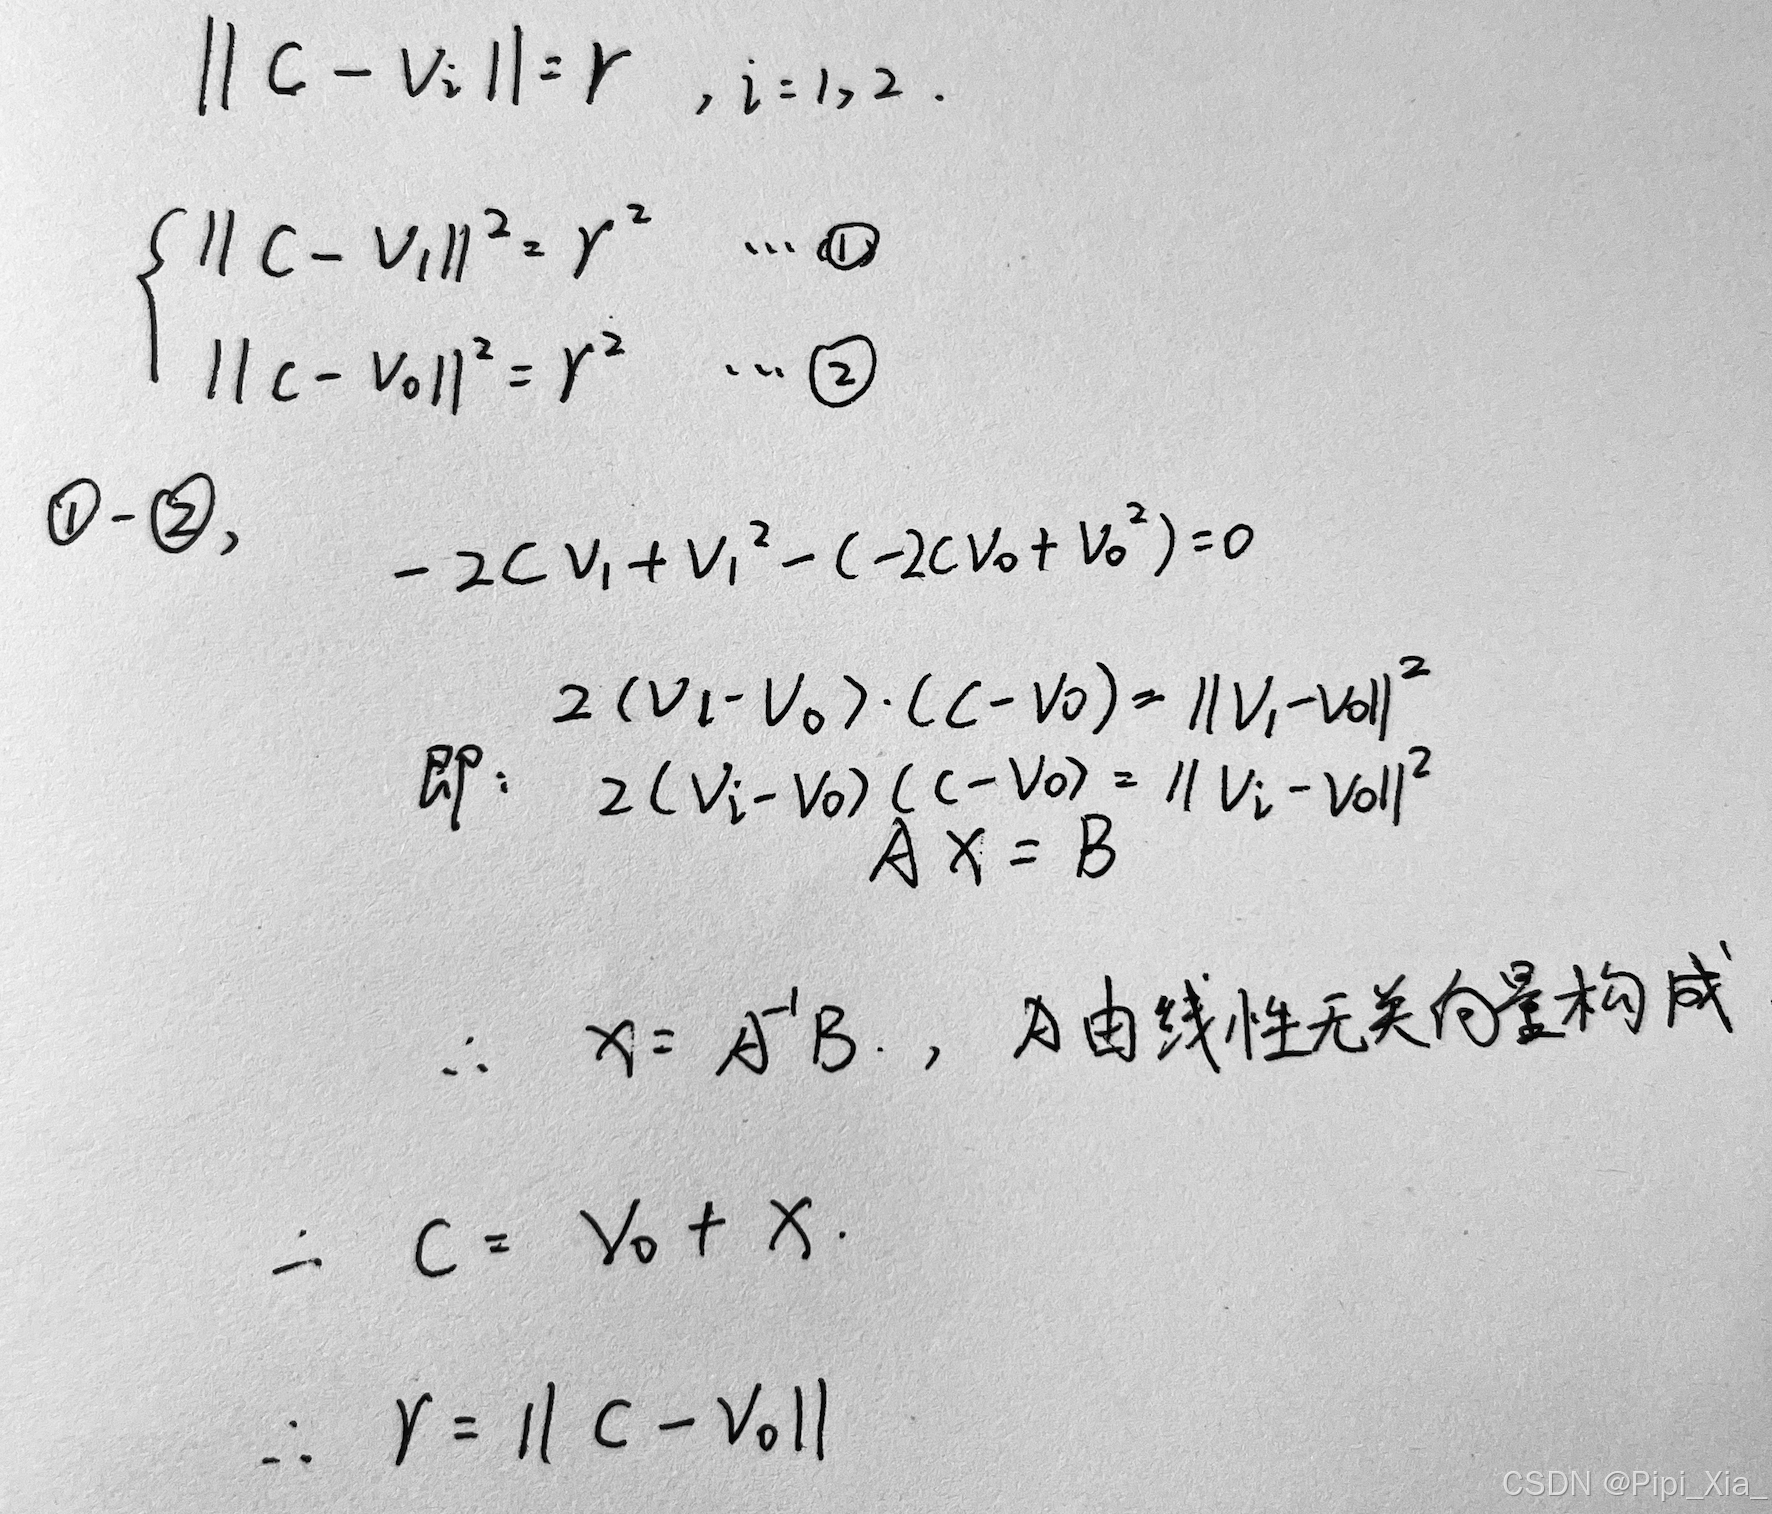 ||C-Vi||=r , i=1,2.
||C-V₁||²=r² ...①
||C-V₀||²=r² ...②
①-②,
-2CV₁+V₁²-(-2CV₀+V₀²)=0
2(V₁-V₀)·(C-V₀)=||V₁-V₀||²
即: 2(Vi-V₀)(C-V₀)=||Vi-V₀||²
A X = B
∴ X=A⁻¹B. , A由线性无关向量构成
∴ C= V₀+X.
∴ r=||C-V₀||
CSDN @Pipi_Xia_